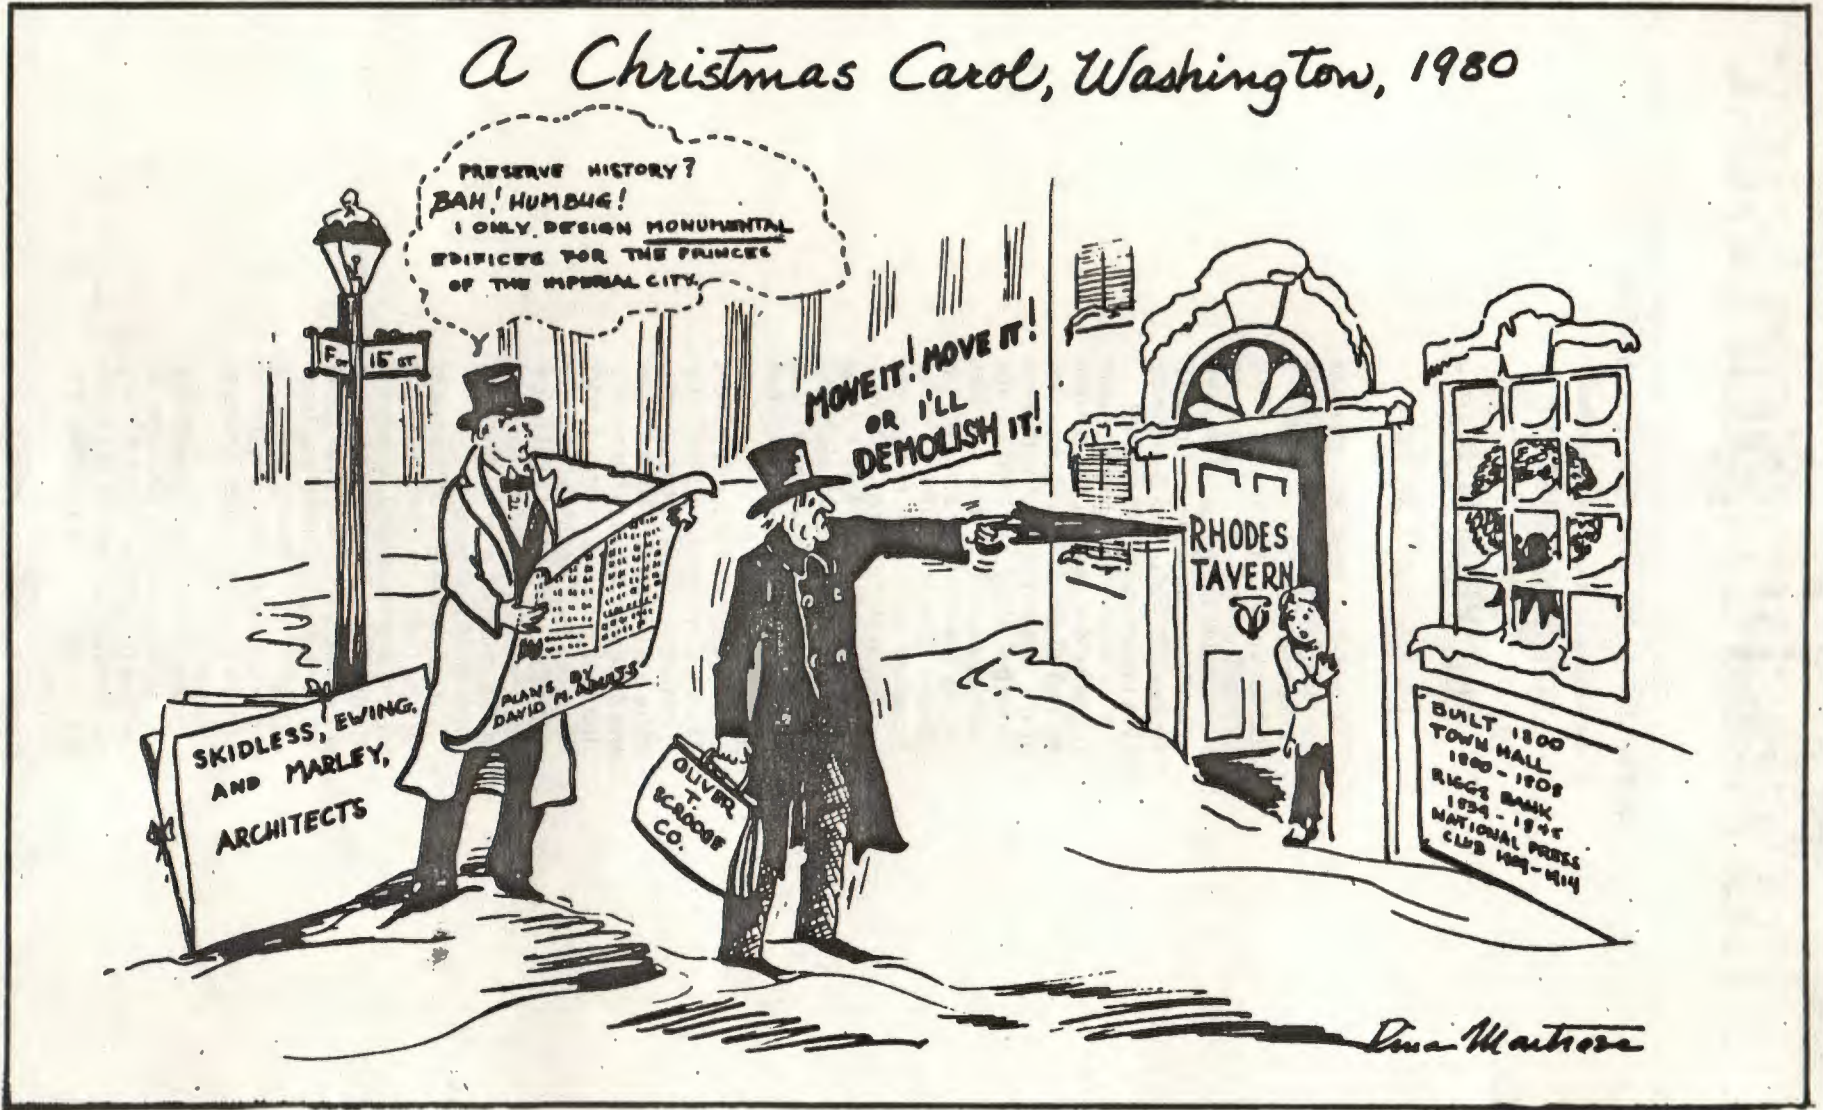 A Christmas Carol, Washington, 1980
PRESERVE HISTORY?
BAH! HUMBUG!
I ONLY DESIGN MONUMENTAL
EDIFICES FOR THE PRINCES
OF THE IMPERIAL CITY.
F ST
15 ST
MOVE IT! MOVE IT!
OR I'LL
DEMOLISH IT!
RHODES
TAVERN
PLANS BY
DAVID M.
SKIDLESS, EWING,
AND MARLEY,
ARCHITECTS
OLIVER
T.
SCROOGE
CO.
BUILT 1800
TOWN HALL
1800-1808
RIGGS BANK
1839-1845
NATIONAL PRESS
CLUB 1909-1914